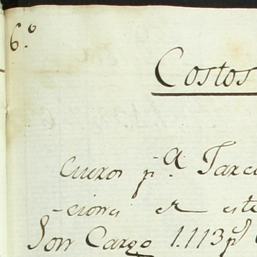 6.º
Costos
Cueros p.ª Tarea
ciones de este
Son Cargo 1.113 p.s